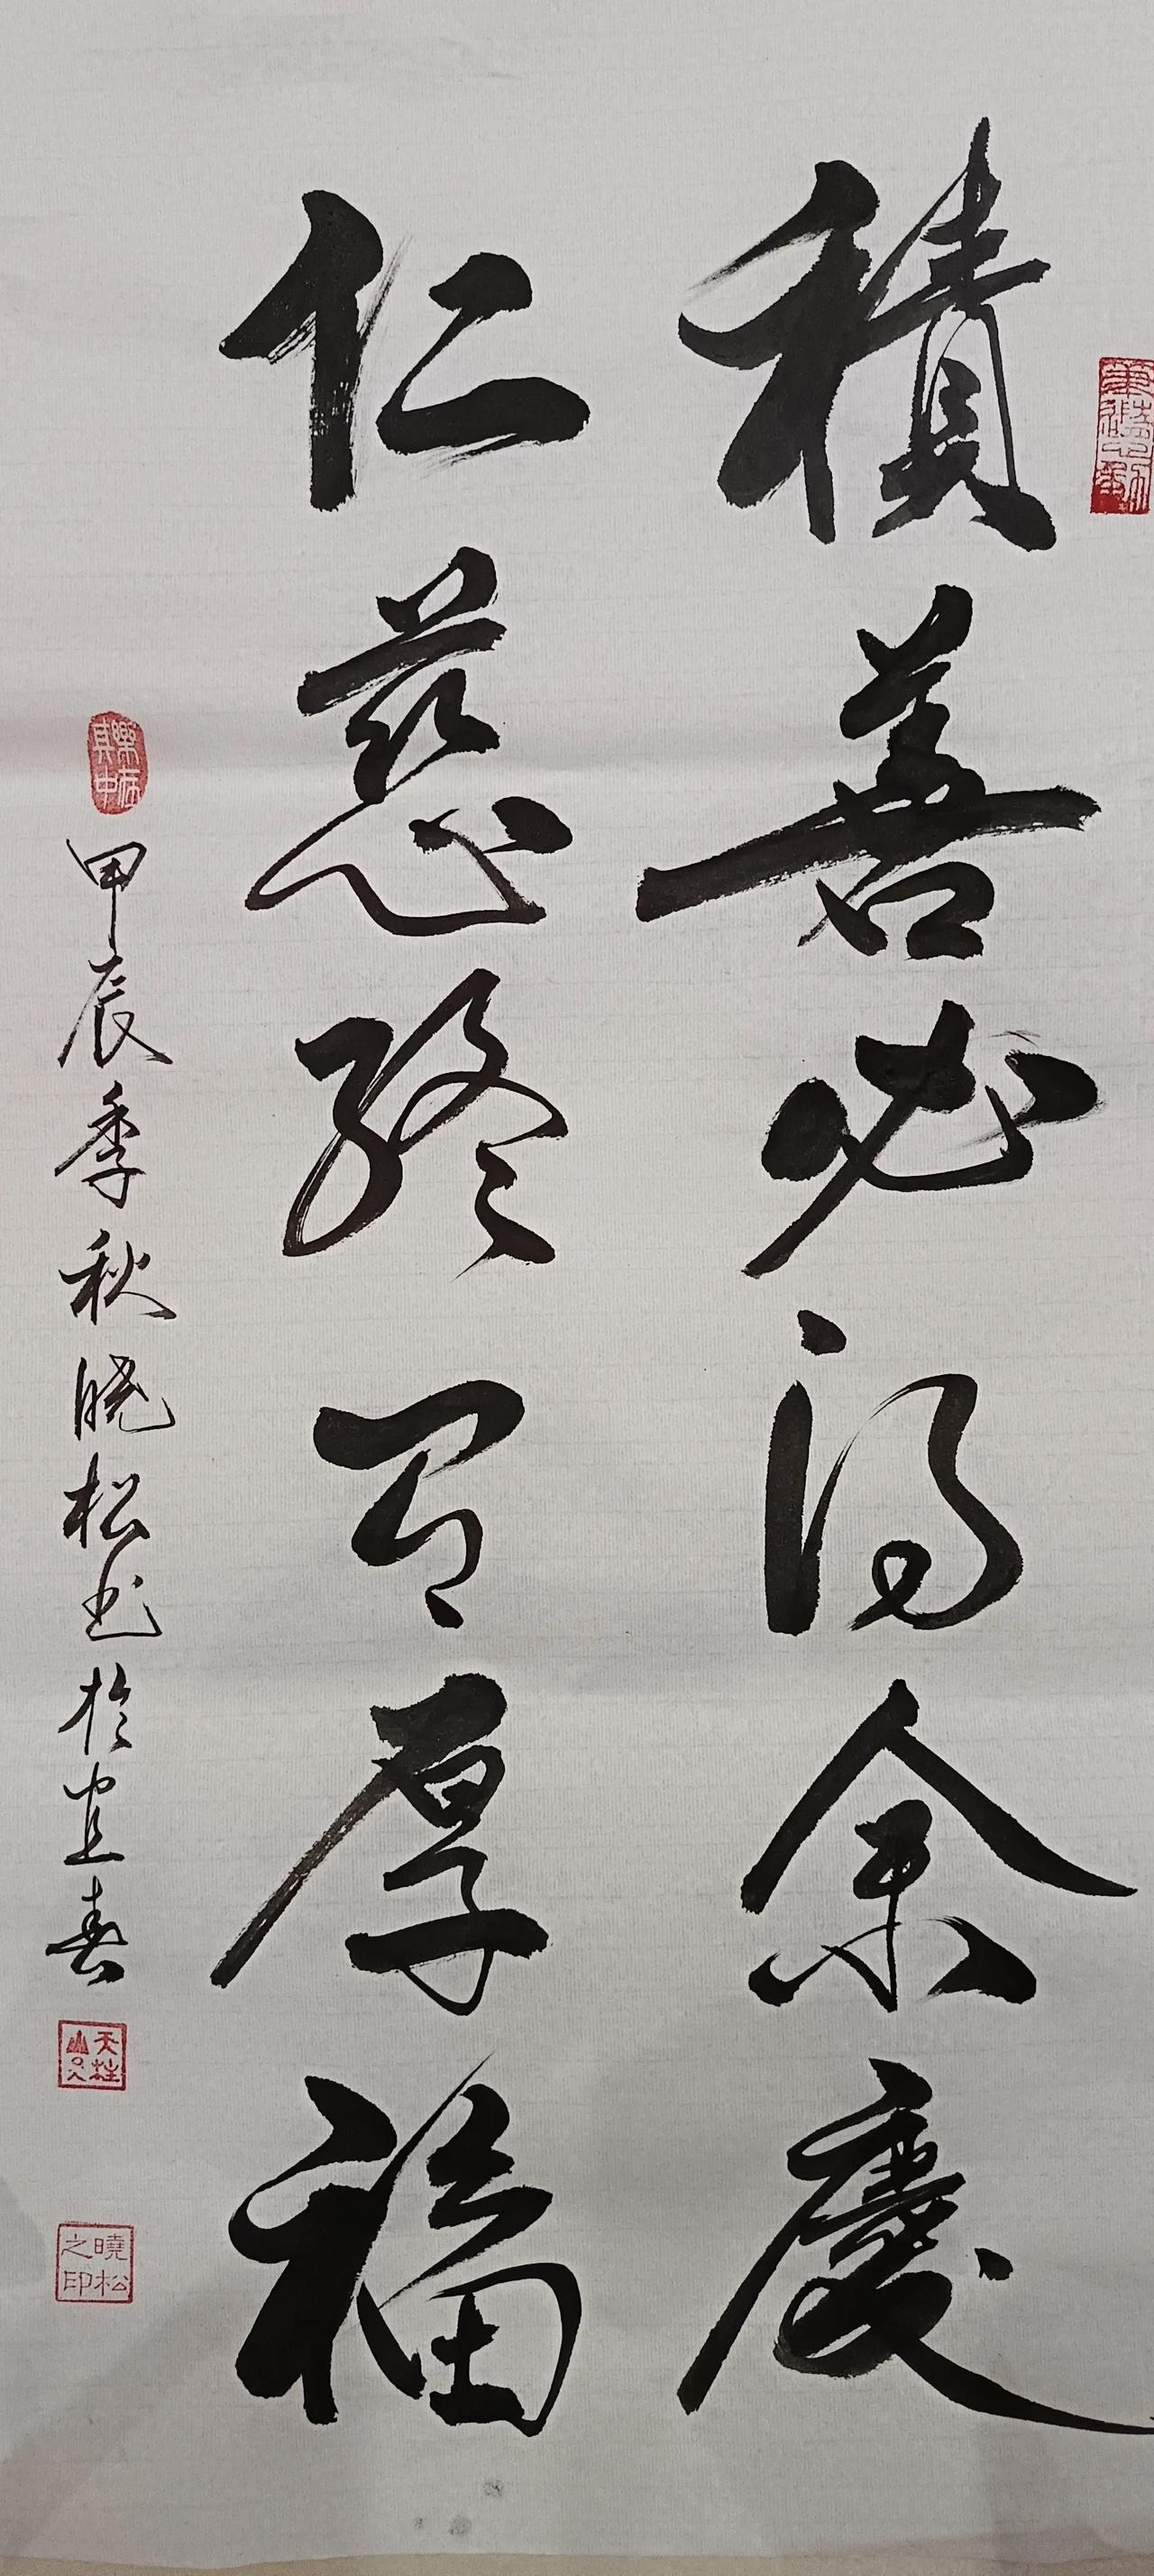 積善必得余慶
仁慈終有厚福
甲辰季秋曉松书於宜春
樂在其中
天柱山人
曉松之印